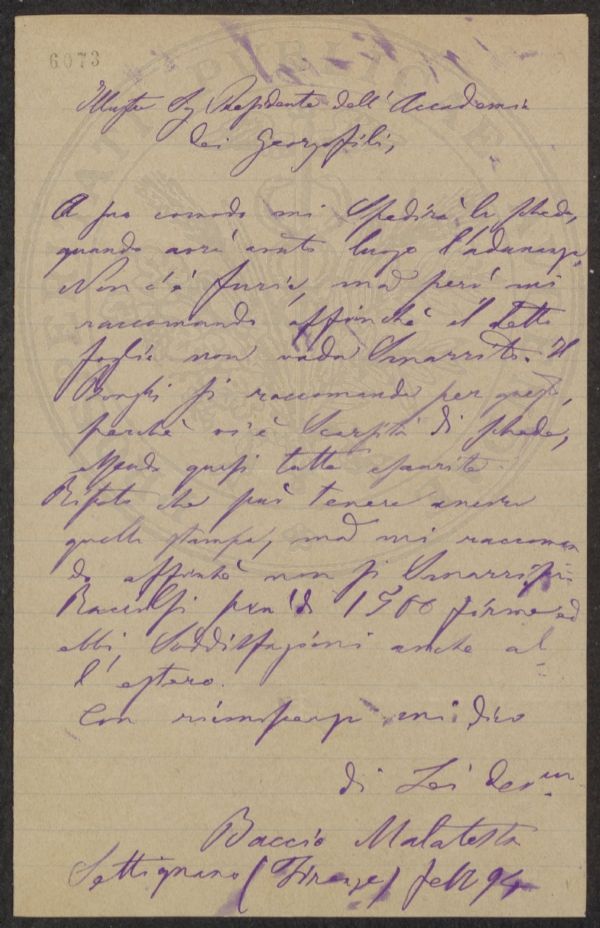 6073
Illustre Sig Presidente dell'Accademia
dei Georgofili,
A suo comodo mi Spedirà la scheda,
quando avrà avuto luogo l'adunanza.
Non c'è furia, ma però mi
raccomando affinchè il detto
foglio non vada Smarrito. Il
Borghi si raccomanda per questo,
perchè vi è Scarsità di schede,
essendo quasi tutte esaurite.
Ripeto che può tenere ancora
quella stampa, ma mi raccoman
do affinchè non si Smarrisca
Raccolsi più di 1500 firme ed
ebbi Soddisfazioni anche al-
l'estero.
Con riconoscenza mi dico
di Lei dev.mo
Baccio Malatesta
Settignano (Firenze) febb 94